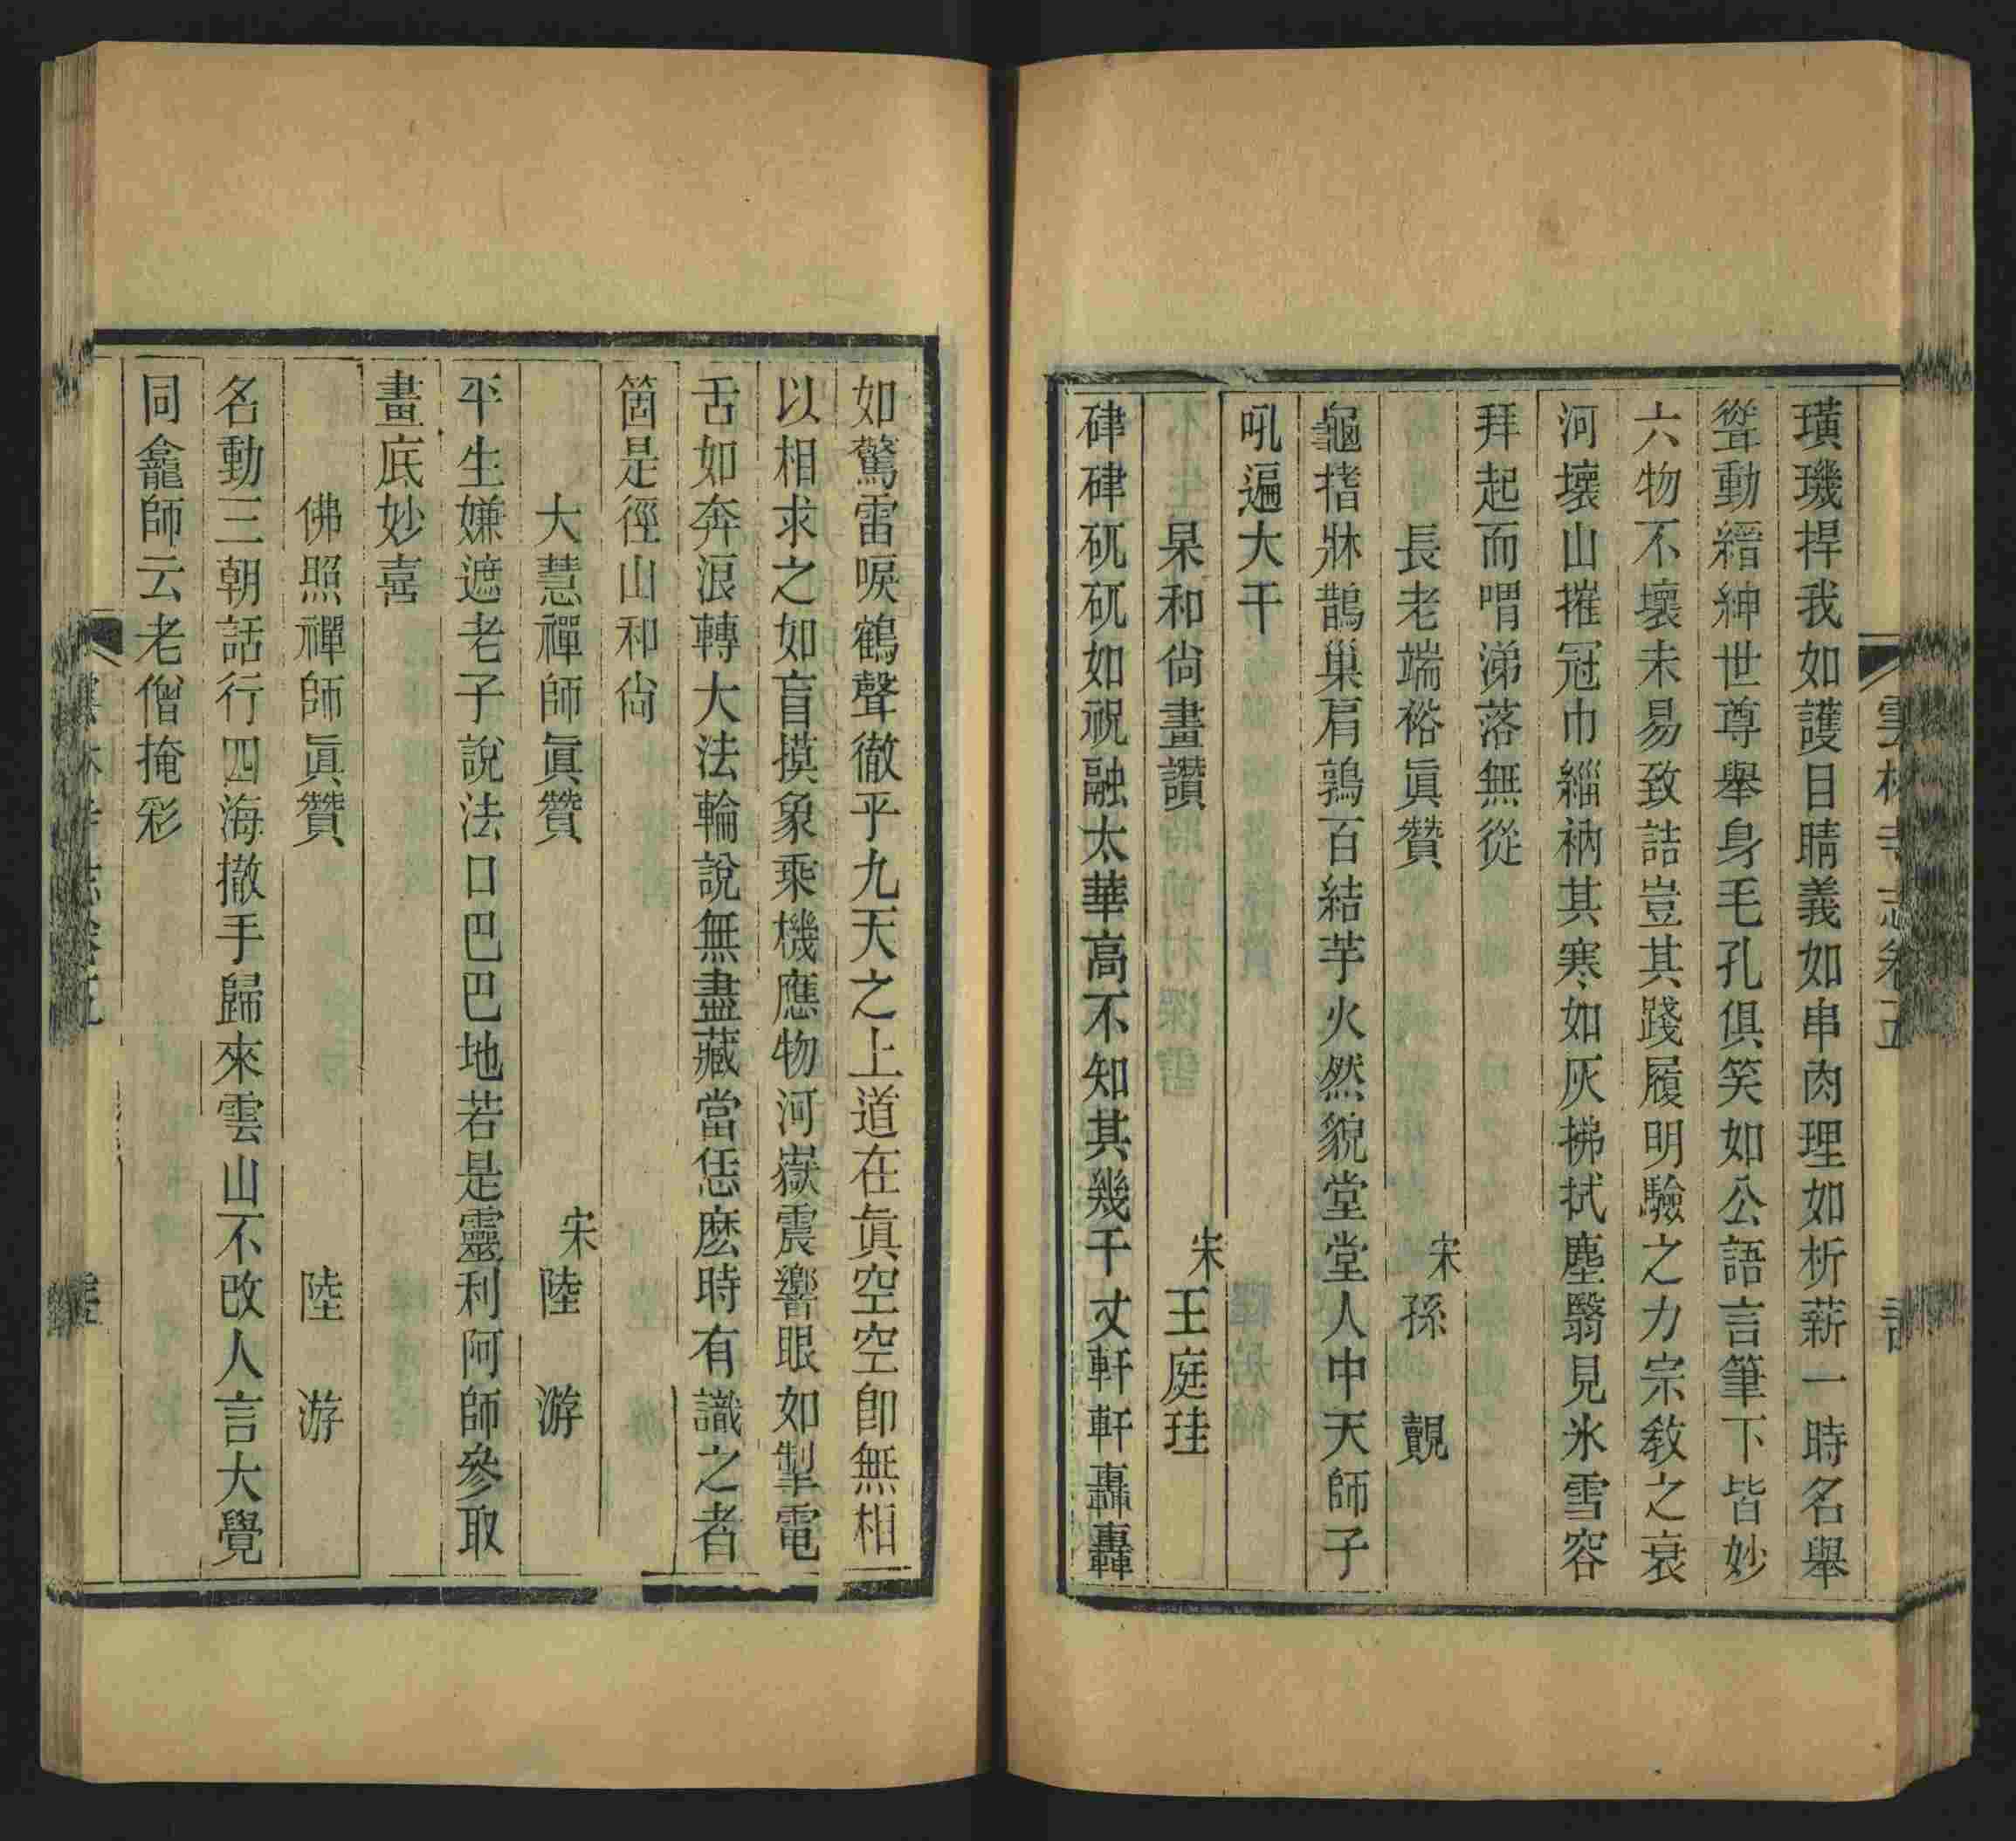 雲林寺志卷五
璜璣捍我如護目睛義如串肉理如析薪一時名舉
聳動縉紳世尊舉身毛孔俱笑如公語言筆下皆妙
六物不壞未易致詰豈其踐履明驗之力宗教之衰
河壞山摧冠巾緇衲其寒如灰拂拭塵翳見氷雪容
拜起而喟涕落無從
長老端裕眞贊 宋孫 覿
龜搘牀鵲巢肩鶉百結芋火然貌堂堂人中天師子
吼遍大千
杲和尙畫讚 宋王庭珪
硉硉矹矹如祝融太華高不知其幾千丈軒軒轟轟
如驚雷唳鶴聲徹乎九天之上道在眞空空卽無相
以相求之如盲摸象乘機應物河嶽震響眼如掣電
舌如奔浪轉大法輪說無盡藏當恁麽時有識之者
箇是徑山和尙
大慧禪師眞贊 宋陸 游
平生嫌遮老子說法口巴巴地若是靈利阿師參取
畫底妙喜
佛照禪師眞贊 陸 游
名動三朝話行四海撤手歸來雲山不改人言大覺
同龕師云老僧掩彩
雲林寺志卷五